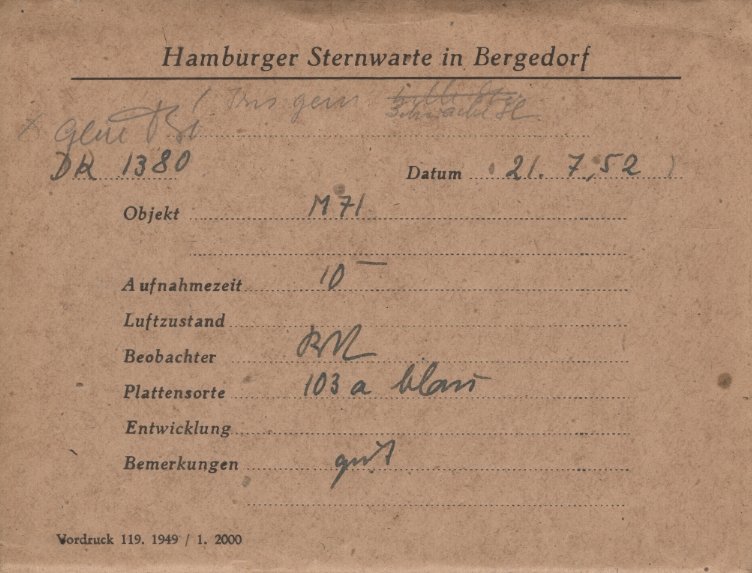 Hamburger Sternwarte in Bergedorf
DR 1380 Datum 21. 7. 52
Objekt M 71
Aufnahmezeit 10 –
Luftzustand
Beobachter
Plattensorte 103 a blau
Entwicklung
Bemerkungen gut
Vordruck 119. 1949 / 1. 2000